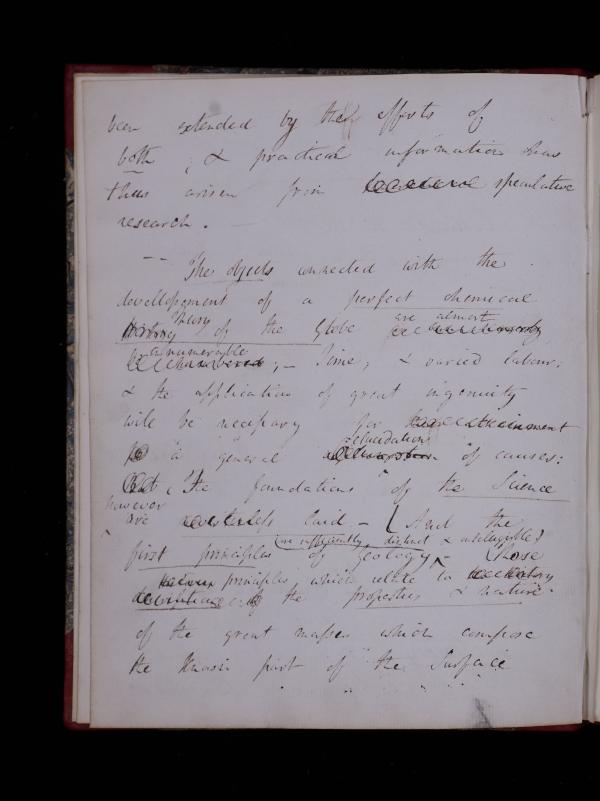 been extended by the efforts of
both; & practical information has
thus arisen from speculative
research. –
–– The objects connected with the
devellopement of a perfect chemical
Theory are almost
History of the Globe
innumerable
;– Time, & varied labour;
& the application of great ingenuity
will be necessary for attainment
elucidation
a general of causes:
But, the foundations of the Science
however
are laid – And the
are sufficiently, distinct & intelligible
first principles of Geology – Those
principles, which relate to
of the properties & nature
of the great masses which compose
the known part of the Surface